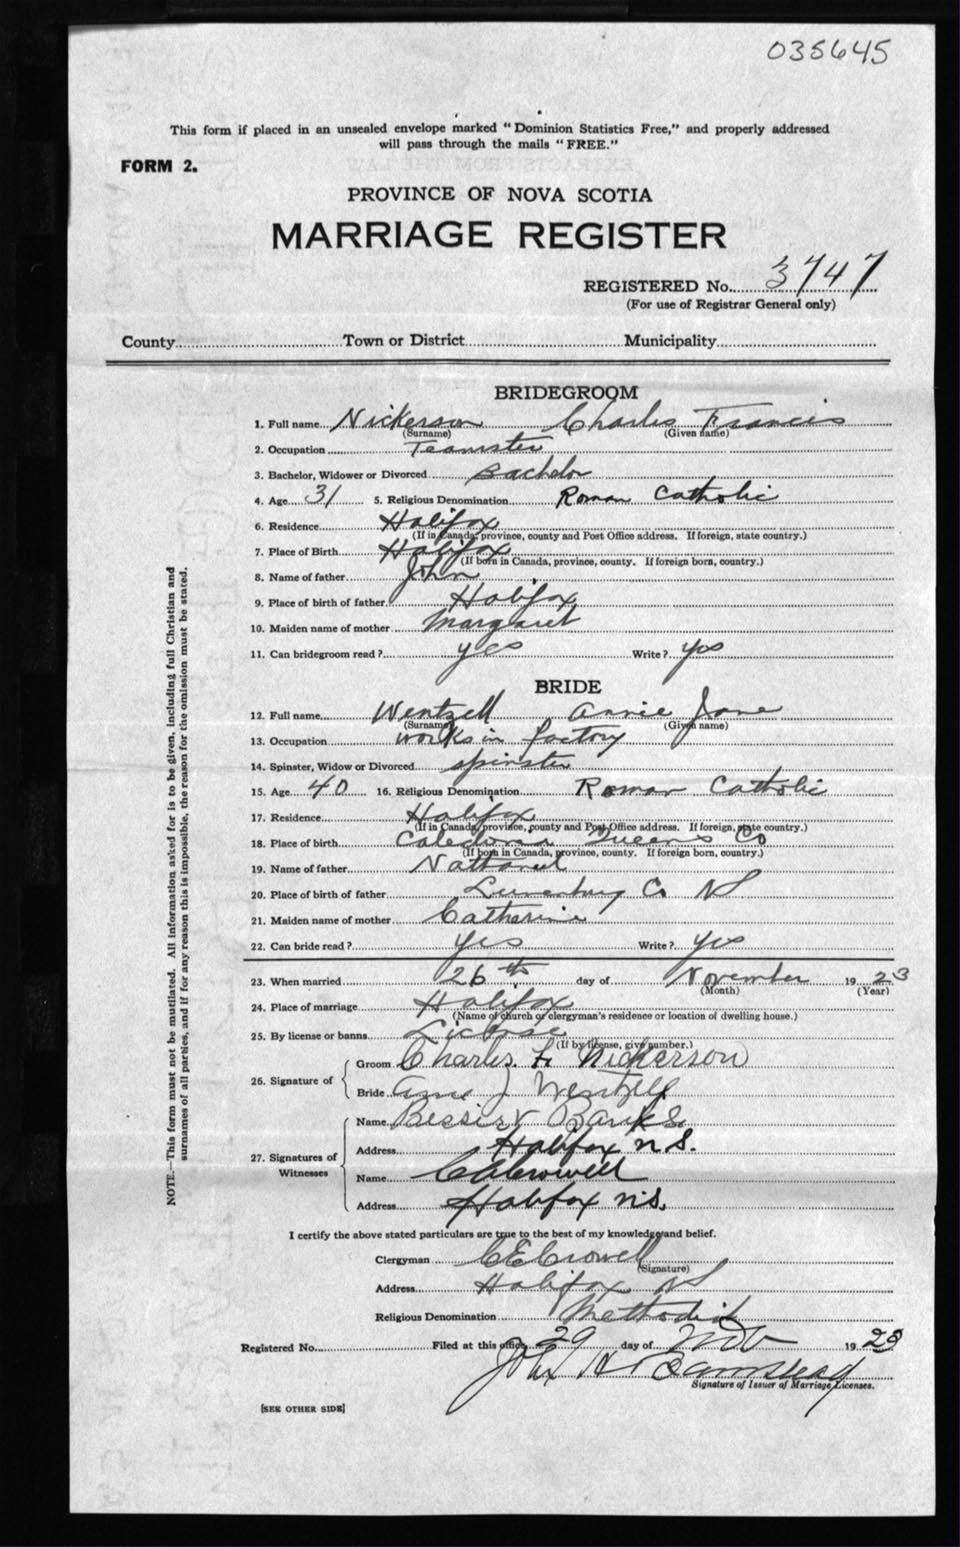 035645
This form if placed in an unsealed envelope marked "Dominion Statistics Free," and properly addressed
will pass through the mails "FREE."
FORM 2.
PROVINCE OF NOVA SCOTIA
MARRIAGE REGISTER
REGISTERED No. 3747
(For use of Registrar General only)
County Town or District Municipality
BRIDEGROOM
1. Full name Nickerson Charles Francis
(Surname) (Given name)
2. Occupation Teamster
3. Bachelor, Widower or Divorced Bachelor
4. Age 31 5. Religious Denomination Roman Catholic
6. Residence Halifax
(If in Canada, province, county and Post Office address. If foreign, state country.)
7. Place of Birth Halifax
(If born in Canada, province, county. If foreign born, country.)
8. Name of father John
9. Place of birth of father Halifax
10. Maiden name of mother Margaret
11. Can bridegroom read? yes Write? yes
BRIDE
12. Full name Wentzell Annie Jane
(Surname) (Given name)
13. Occupation works in factory
14. Spinster, Widow or Divorced spinster
15. Age 40 16. Religious Denomination Roman Catholic
17. Residence Halifax
(If in Canada, province, county and Post Office address. If foreign, state country.)
18. Place of birth Caledonia Queens Co
(If born in Canada, province, county. If foreign born, country.)
19. Name of father Nathaniel
20. Place of birth of father Lunenburg Co NS
21. Maiden name of mother Catherine
22. Can bride read? yes Write? yes
23. When married 26th day of November 1923
(Month) (Year)
24. Place of marriage Halifax
(Name of church or clergyman's residence or location of dwelling house.)
25. By license or banns License
(If by license, give number.)
26. Signature of Groom Charles. F. Nickerson
Bride Annie J Wentzell
27. Signatures of Witnesses Name Bessie V Banks
Address Halifax N.S.
Name C A Crowell
Address Halifax N.S.
I certify the above stated particulars are true to the best of my knowledge and belief.
Clergyman C E Crowell
(Signature)
Address Halifax NS
Religious Denomination Methodist
Registered No. Filed at this office 29 day of Nov 1923
John H
Signature of Issuer of Marriage Licenses.
[SEE OTHER SIDE]
NOTE.—This form must not be mutilated. All information asked for is to be given, including full Christian and
surnames of all parties, and if for any reason this is impossible, the reason for the omission must be stated.